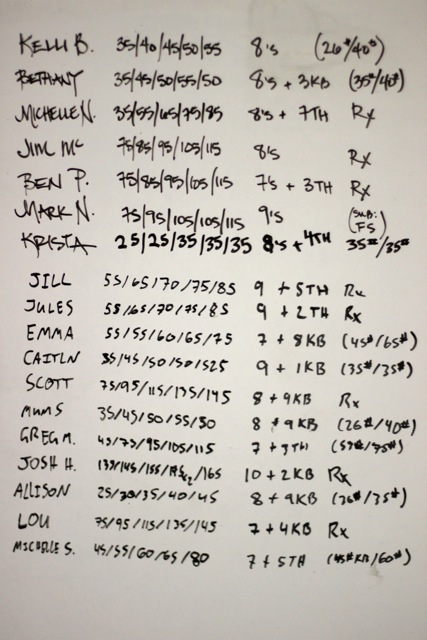 KELLI B. 35/40/45/50/55 8's (26#/40#)
BETHANY 35/45/50/55/50 8's + 3KB (35#/40#)
MICHELLE N. 35/55/65/75/85 8's + 7TH Rx
JIM Mc 75/85/95/105/115 8's Rx
BEN P. 75/85/95/105/115 7's + 3TH Rx
MARK N. 75/95/105/105/115 9's (SUB: FS)
KRISTA 25/25/35/35/35 8's + 4TH 35#/35#
JILL 55/65/70/75/85 9 + 5TH Rx
JULES 55/65/70/75/85 9 + 2TH Rx
EMMA 55/55/60/65/75 7 + 8KB (45#/65#)
CAITLN 35/45/50/50/525 9 + 1KB (35#/35#)
SCOTT 75/95/115/135/145 8 + 9KB Rx
MUMS 35/45/50/55/50 8 + 9KB (26#/40#)
GREG M. 45/75/95/105/115 7 + 9TH (53#/75#)
JOSH H. 135/145/155/ /165 10 + 2KB Rx
ALLISON 25/30/35/40/45 8 + 9KB (26#/35#)
LOU 75/95/115/135/145 7 + 4KB Rx
MICHELLE S. 45/55/60/65/80 7 + 5TH (45#KB/60#)